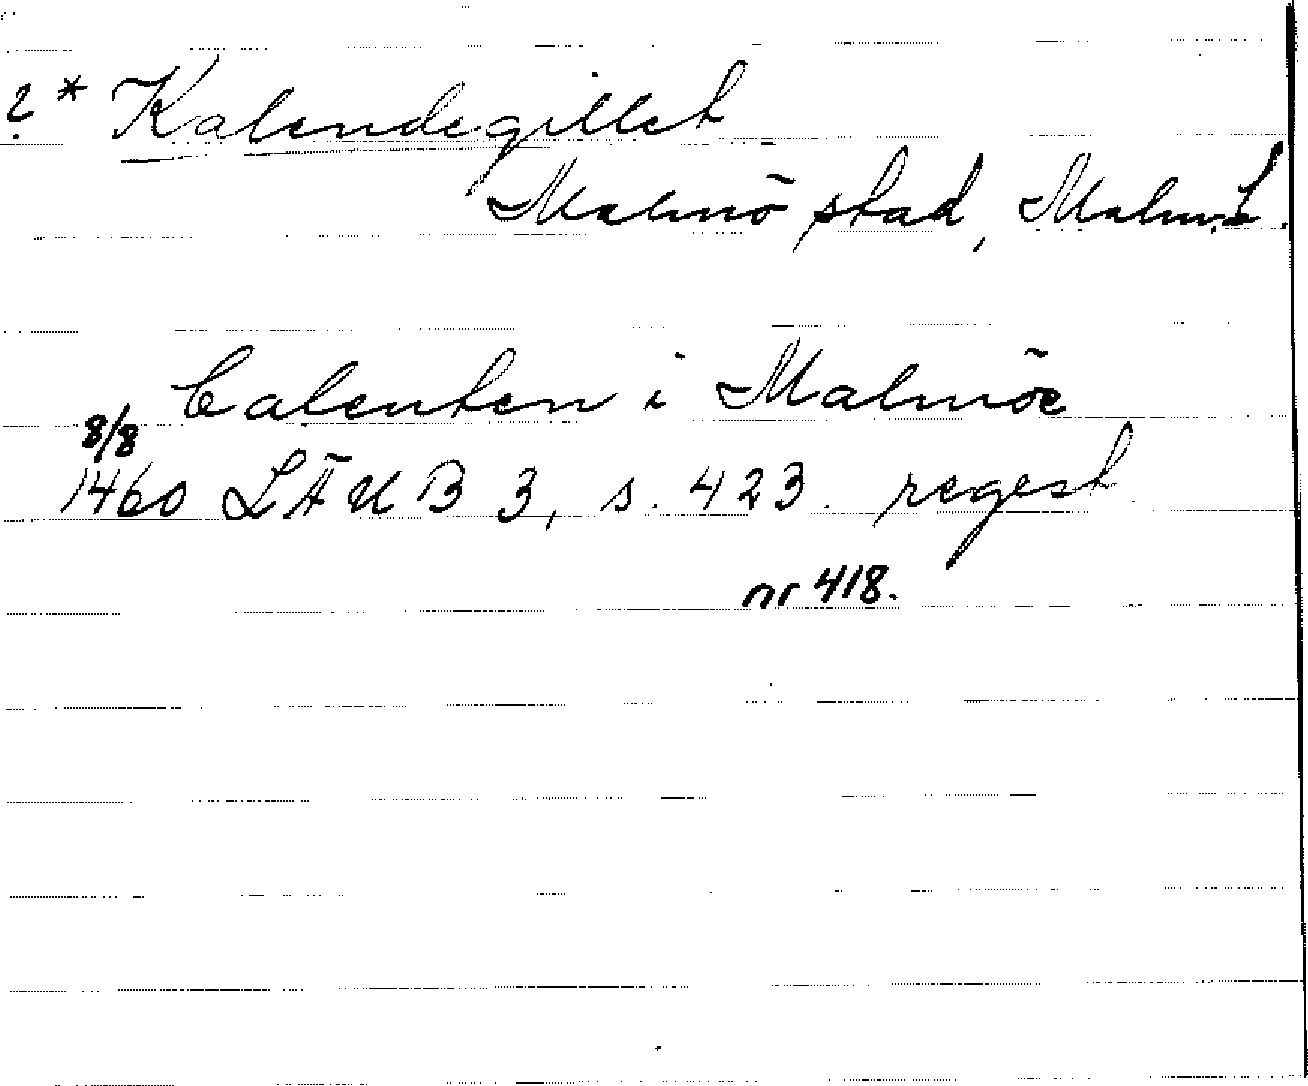 ? * Kalendegillet
Malmö stad, Malm. L.
Calenten i Malmöe
8/8
1460 LÄUB 3, s. 423. regest
nr 418.